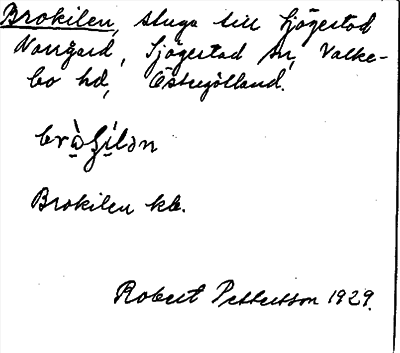 Brokilen, stuga till Sjögestad
Norrgård, Sjögestad sn, Valke-
bo hd, Östergötland.
Brokilen kb.
Robert Pettersson 1929.